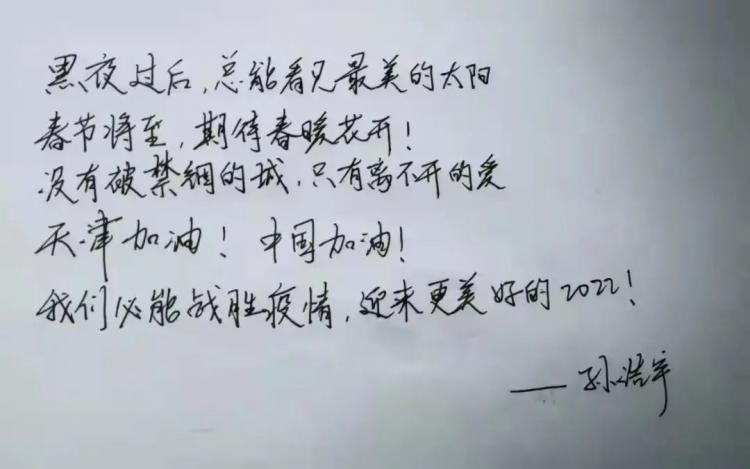 黑夜过后,总能看见最美的太阳
春节将至,期待春暖花开!
没有被禁锢的城,只有离不开的爱
天津加油!中国加油!
我们必能战胜疫情,迎来更美好的2022!
——孙浩宇